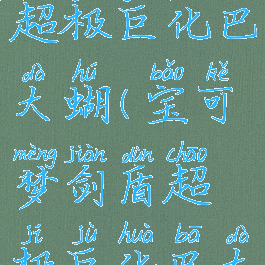 超极巨化巴
dà hú bǎo kě
大蝴(宝可
mèng jiàn dùn chāo
梦剑盾超
jí jù huà bā dà
极巨化巴大